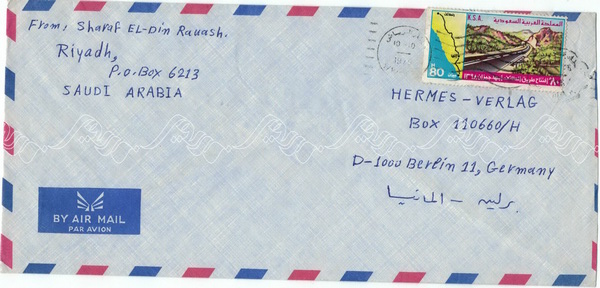 From, Sharaf EL-Din Rauash.
Riyadh,
P.O.Box 6213
SAUDI ARABIA
K.S.A.
المملكة العربية السعودية
80
٨٠
HERMES-VERLAG
Box 110660/H
D-1000 Berlin 11, Germany
برلين - المانيا
BY AIR MAIL
PAR AVION